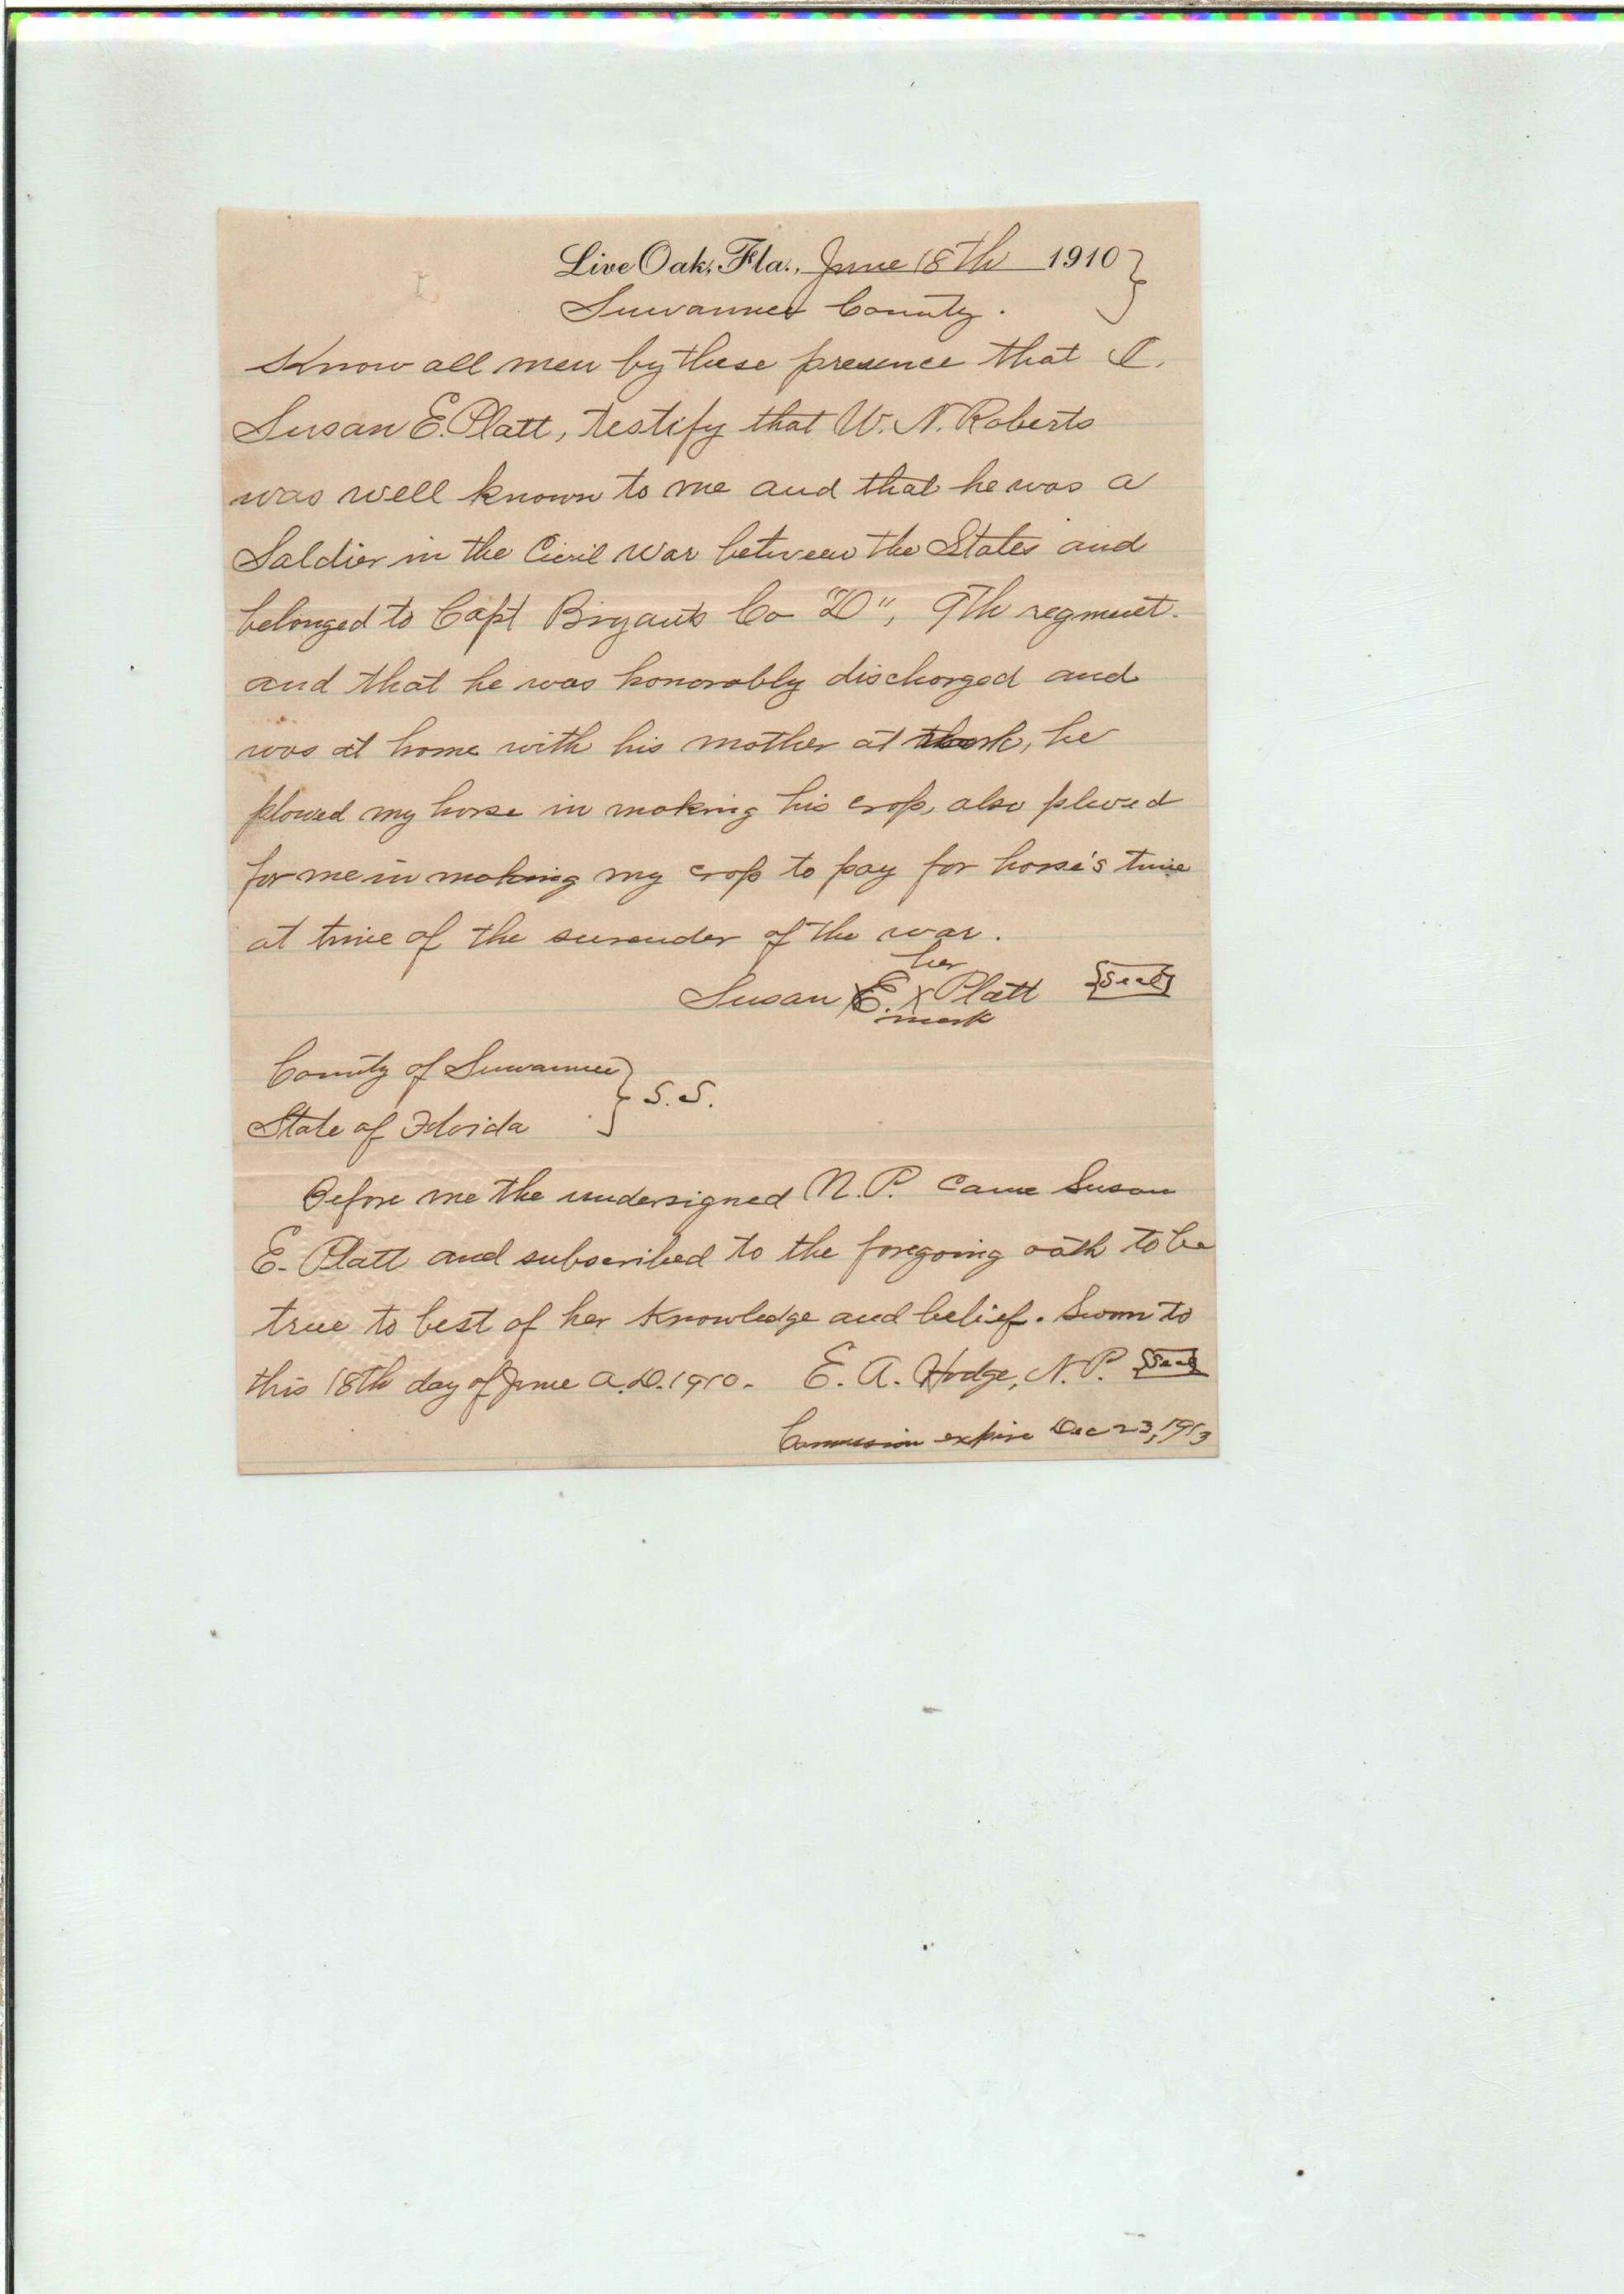 Live Oak, Fla., June 18th 1910 }
Suwannee County.
Know all men by these presence that I,
Susan E. Platt, testify that W. N. Roberts
was well known to me and that he was a
Soldier in the Civil War between the States and
belonged to Capt Bryants Co "D", 9th regment.
and that he was honorably discharged and
was at home with his mother at work, he
plowed my horse in making his crop, also plowed
for me in making my crop to pay for horse's time
at time of the surender of the war.
her
Susan E. X Platt {Seal}
mark
County of Suwannee }
} S.S.
State of Florida
Before me the undersigned N. P. came Susan
E. Platt and subscribed to the foregoing oath to be
true to best of her knowledge and belief. Sworn to
this 18th day of June A.D. 1910. E. A. Hodge, N. P. {Seal}
Commission expire Dec 23, 1913